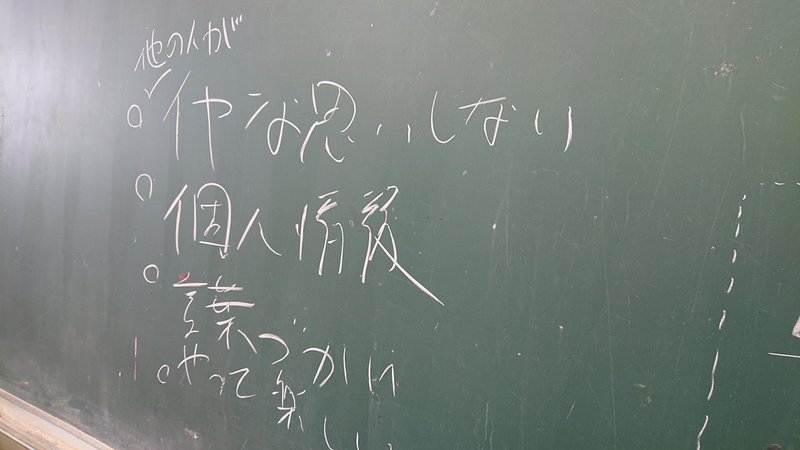 他の人が
○イヤな思いしない
○個人情報
○言葉づかい
○やって楽しい